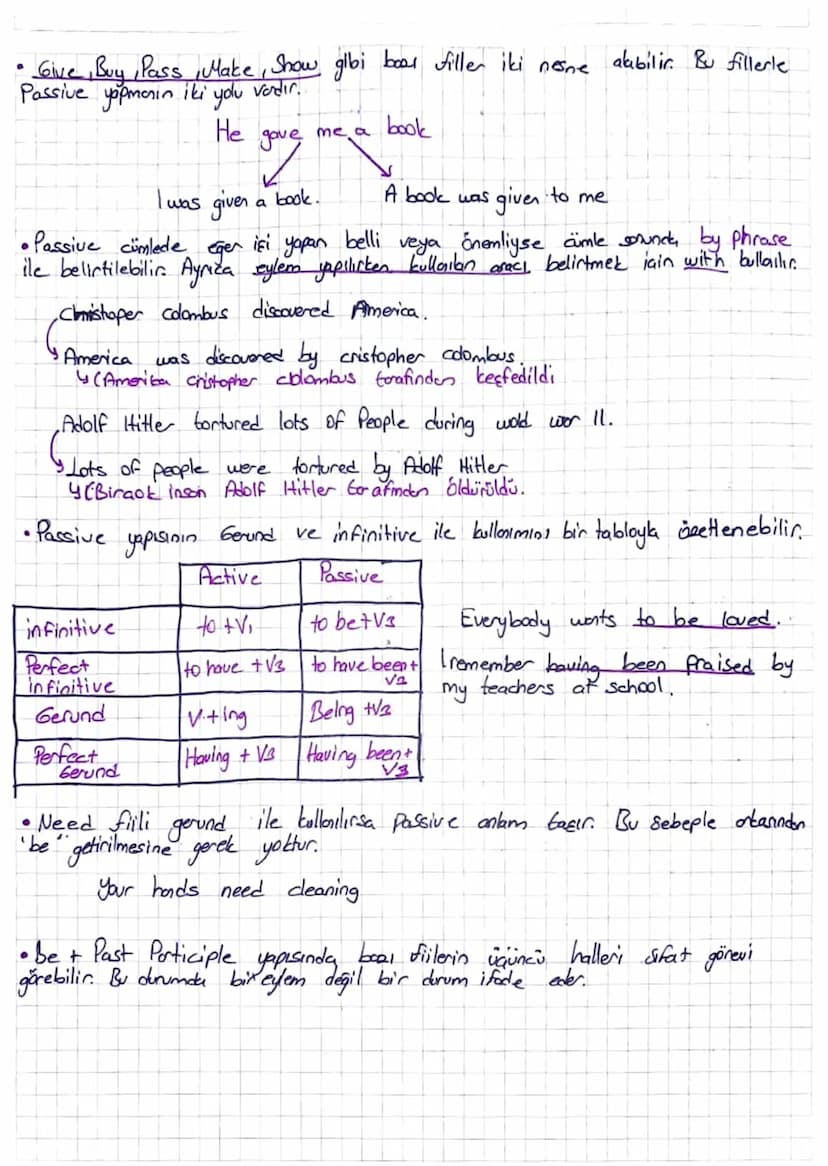 • Give, Buy, Pass, Make, Show gibi bazı fiiller iki nesne alabilir. Bu fiillerle
Passive yapmanın iki yolu vardır.
He gave me a book
I was given a book.
A book was given to me
• Passive cümlede eğer işi yapan belli veya önemliyse cümle sonunda by phrase
ile belirtilebilir. Ayrıca eylem yapılırken kullanılan aracı belirtmek için with kullanılır.
Christoper colombus discovered America.
America was discovered by cristopher colombus.
↳(Amerika cristopher colombus tarafından keşfedildi
Adolf Hitler tortured lots of People during wold war II.
Lots of people were tortured by Adolf Hitler
↳(Birçok insan Adolf Hitler tarafından öldürüldü.
• Passive yapısının Gerund ve infinitive ile kullanımını bir tabloyla özetlenebilir.
Active Passive
infinitive to +V1 to be+V3
Perfect infinitive to have +V3 to have been+ V3
Gerund V+ing Being +V3
Perfect Gerund Having + V3 Having been+ V3
Everybody wants to be loved.
I remember having been praised by
my teachers at school.
• Need fiili gerund ile kullanılırsa Passive anlam taşır. Bu sebeple ortasından
"be" getirilmesine gerek yoktur.
Your hands need cleaning
• Be + Past Participle yapısında bazı fiilerin üçüncü halleri sıfat görevi
görebilir. Bu durumda bir eylem değil bir durum ifade eder.